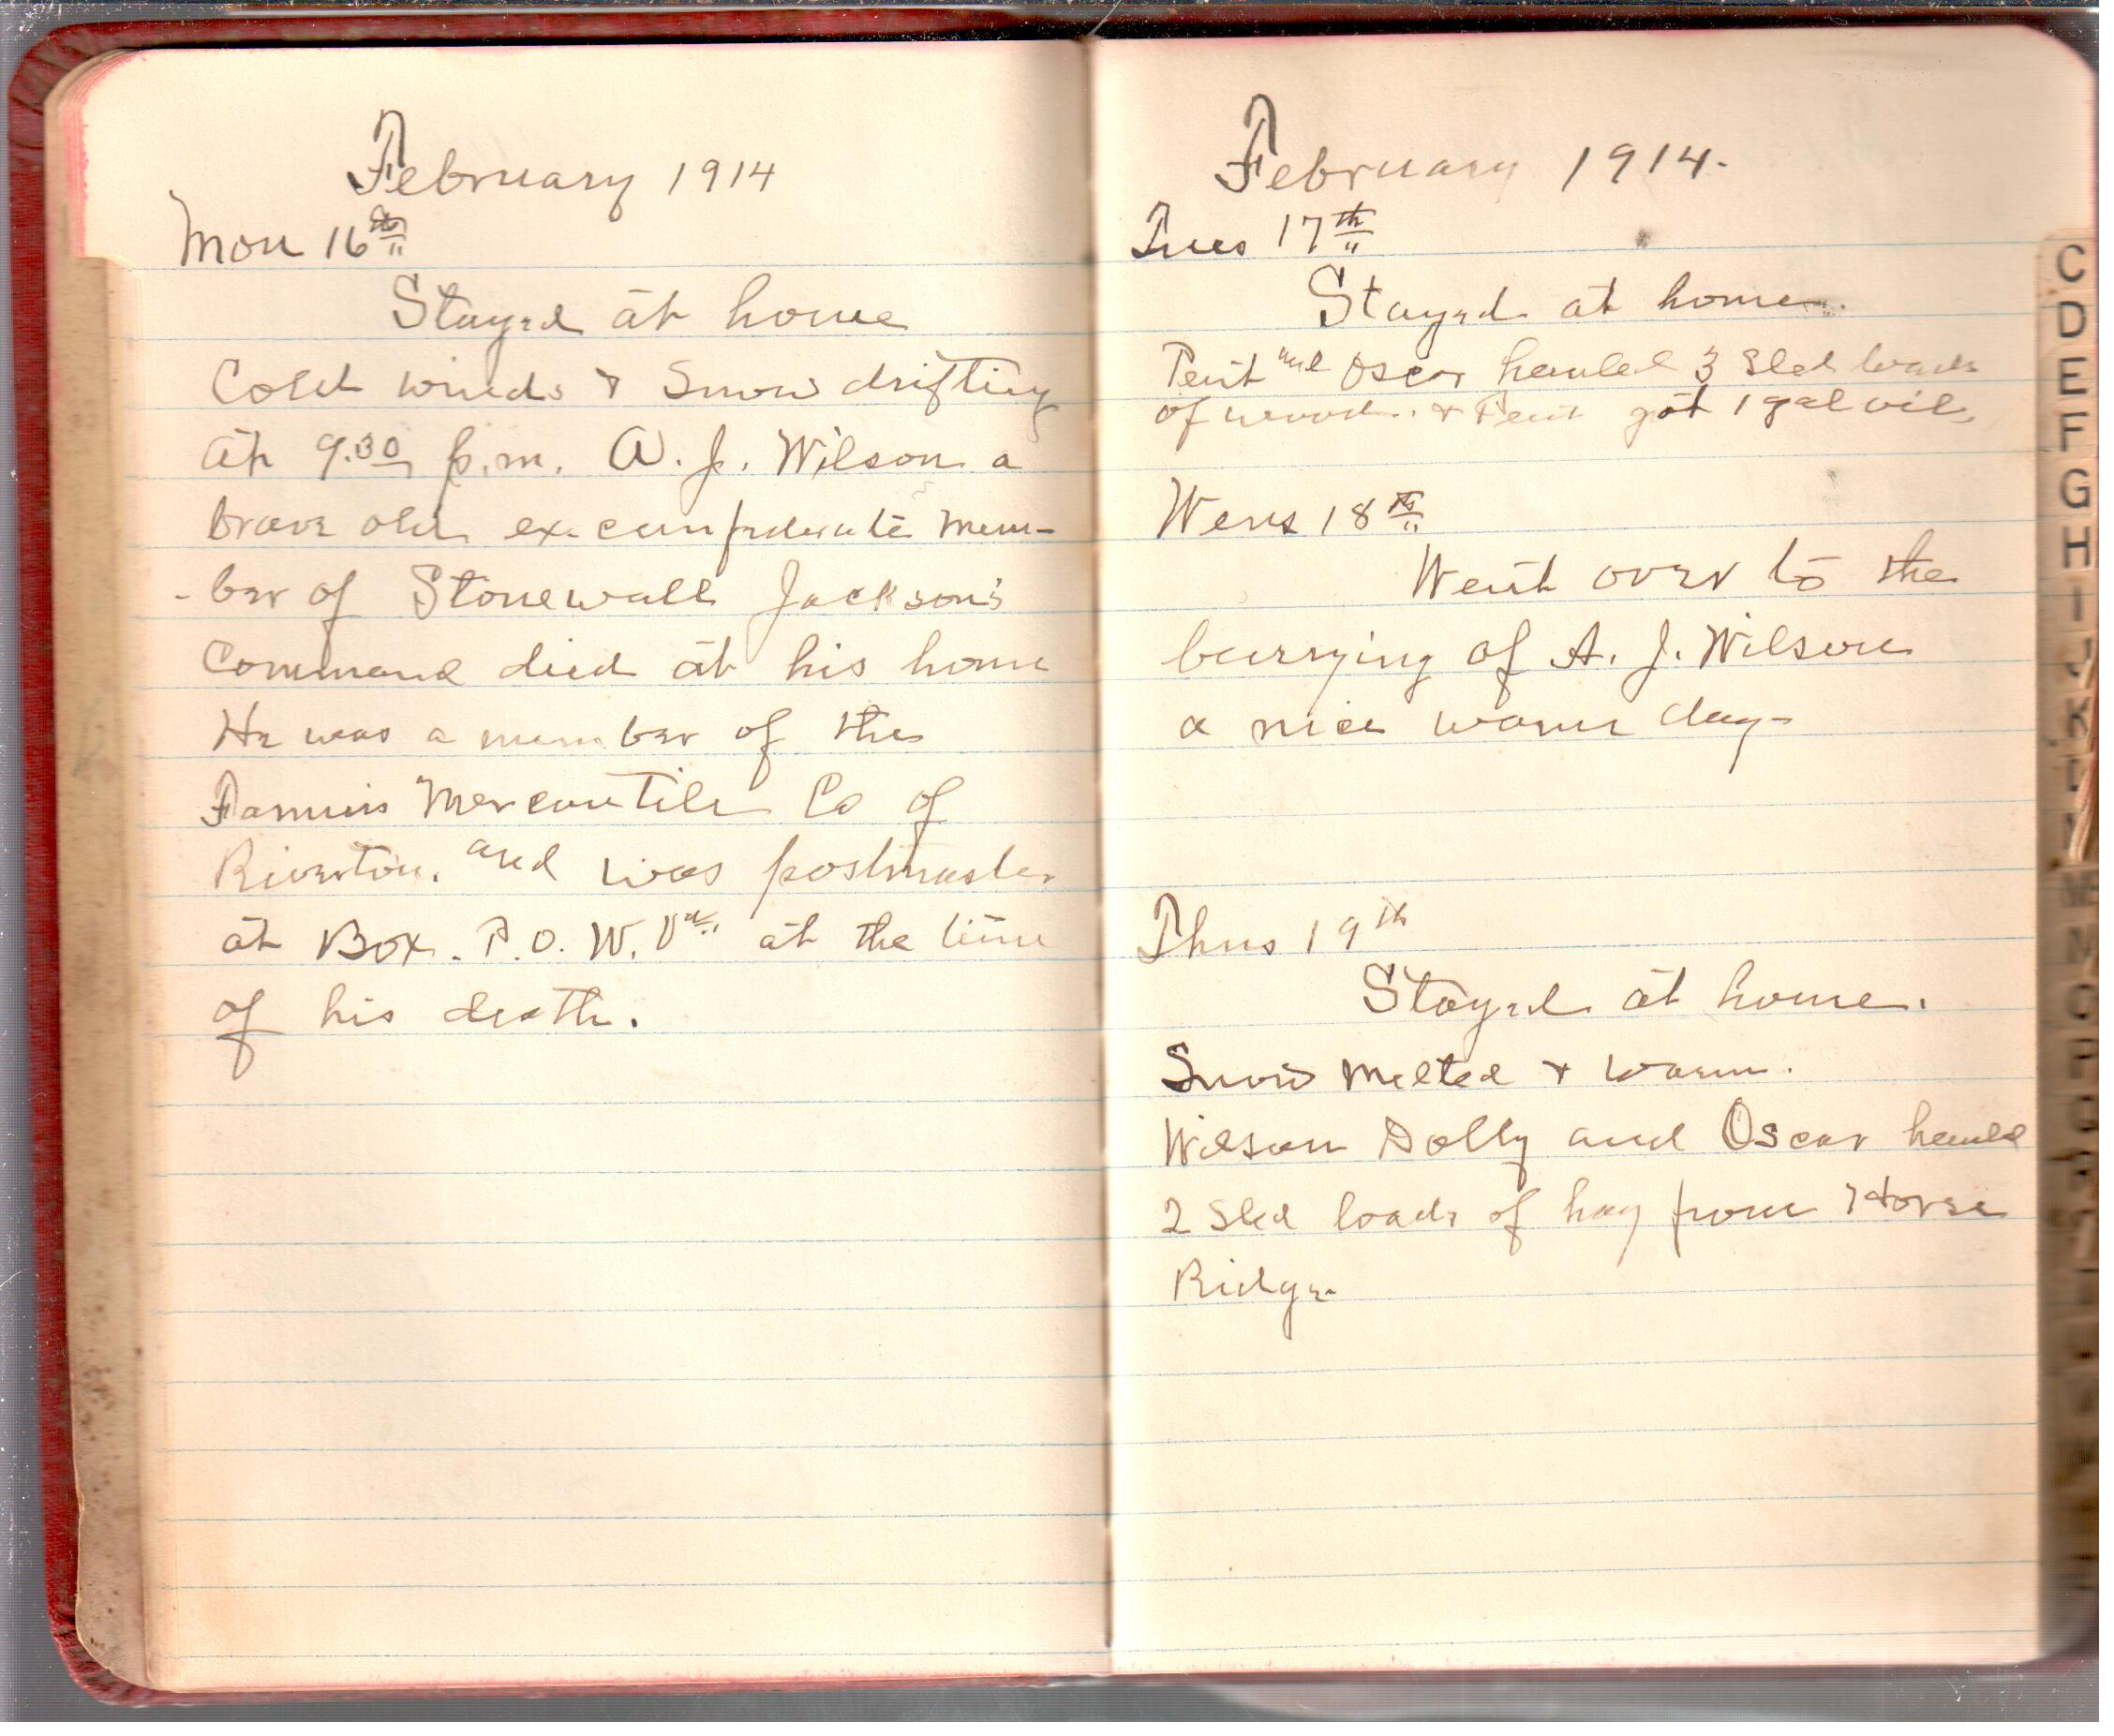 February 1914
Mon 16th
Stayed at home
Cold winds & Snow drifting
at 9.30 p.m. A. J. Wilson a
brave old ex-confederate mem-
-ber of Stonewall Jackson's
Command died at his home
He was a member of the
Farmers Mercantile Co of
Riverton. and was postmaster
at Box. P.O. W. Va. at the time
of his death.
February 1914.
Tues 17th
Stayed at home.
and Oscar hauled 3 Sled loads
of wood. & got 1 gal oil.
Wens 18th
Went over to the
burrying of A. J. Wilson
a nice warm day-
Thus 19th
Stayed at home.
Snow melted & warm.
Wilson Dolly and Oscar hauled
2 Sled loads of hay from Horse
Ridge.
C
D
E
F
G
H
I
J
K
L
M
N
O
P